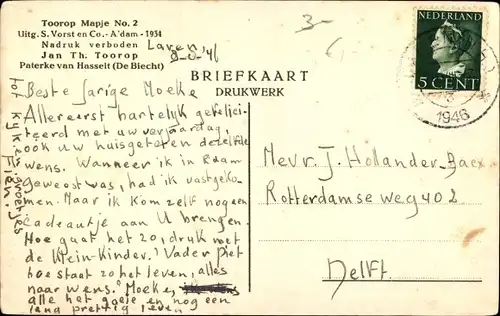 Toorop Mapje No. 2
Uitg. S. Vorst en Co. - A'dam - 1934
Nadruk verboden
Jan Th. Toorop
Paterke van Hasselt (De Biecht)
Laren,
BRIEFKAART
DRUKWERK
NEDERLAND
5 CENT
1946
3-
6,-
Beste jarige Moeke
Allereerst hartelijk gefelici-
teerd met uw verjaardag,
ook uw huisgenoten dezelfde
wens. Wanneer ik in R'dam
geweest was, had ik vast geko-
men. Maar ik kom zelf nog een
cadeautje aan U brengen.
Hoe gaat het zo, druk met
de Klein-Kinder? Vader Piet
hoe staat zo het leven, alles
naar wens? Moeke,
alle het goeie en nog een
lang prettig leven
tot kijk en groetjes
Fien
Mevr. J. Hollander-Baex
Rotterdamse weg 402
Delft.